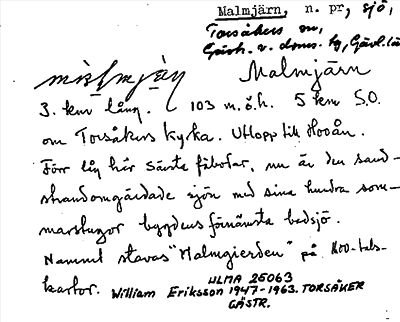 Malmjärn, n. pr, sjö,
Torsåkers sn,
Gästr. v. doms. hg, Gävl. lä
Malmjärn
3. km lång. 103 m. ö. h. 5 km S.O.
om Torsåkers kyrka. Utlopp till Hoån.
Förr låg här Säva fäbodar, nu är den sand-
strandomgärdade sjön med sina hundra som-
marstugor bygdens förnämsta badsjö.
Namnet stavas "Malmgierden" på 1600-tals-
kartor.
ULMA 25063
William Eriksson 1947-1963. TORSÅKER
GÄSTR.